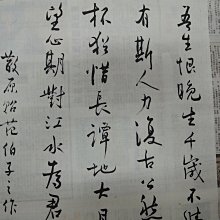 吾生恨晚生千歲不
有斯人力復古公然
杯猶惜長譚地大月
望心期對江水為君
散原貽范伯子之作